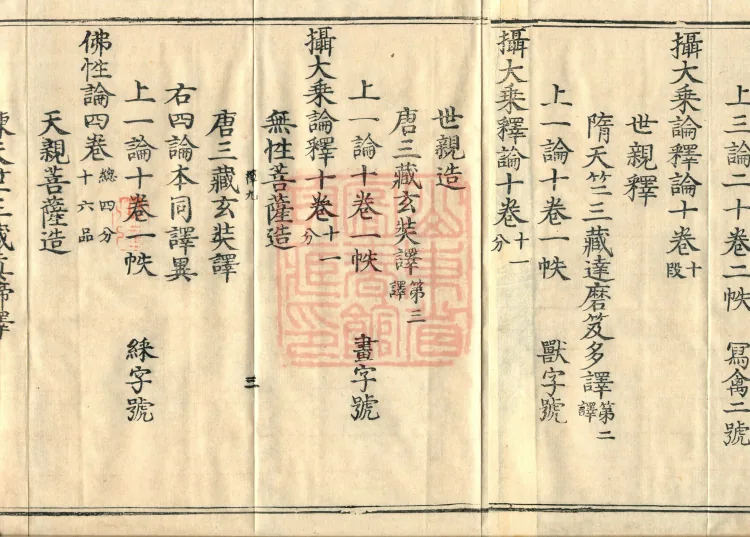 上三論二十卷二帙　冩禽二號
攝大乗論釋論十卷十叚
世親釋
隋天竺三藏達磨笈多譯第二譯
上一論十卷一帙　獸字號
攝大乗釋論十卷十一分
世親造
唐三藏玄奘譯第三譯
上一論十卷一帙　畫字號
攝大乗論釋十卷十一分
無性菩薩造
三
唐三藏玄奘譯
右四論本同譯異
上一論十卷一帙　綵字號
佛性論四卷總四分十六品
天親菩薩造
陳天竺三藏真諦譯